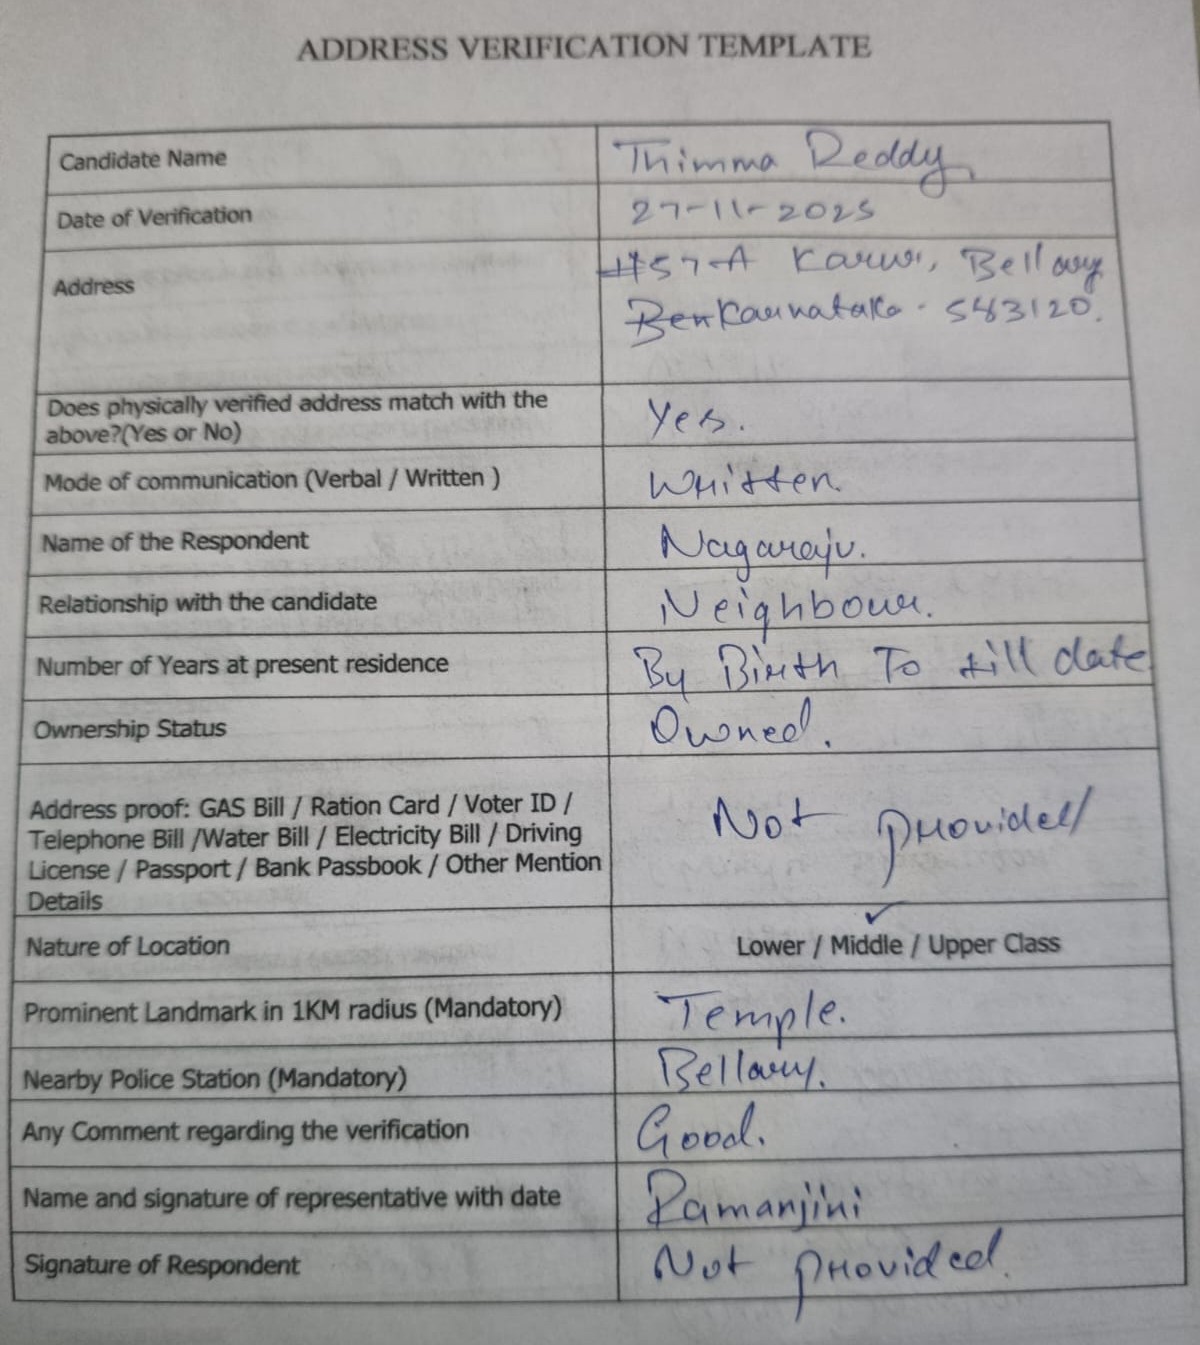 ADDRESS VERIFICATION TEMPLATE
Candidate Name
Thimma Reddy
Date of Verification
27-11-2025
Address
#57-A Bellary
Karnataka - 583120.
Does physically verified address match with the
above?(Yes or No)
Yes.
Mode of communication (Verbal / Written )
Written.
Name of the Respondent
Nagaraju.
Relationship with the candidate
Neighbour.
Number of Years at present residence
By Birth To till date
Ownership Status
Owned.
Address proof: GAS Bill / Ration Card / Voter ID /
Telephone Bill /Water Bill / Electricity Bill / Driving
License / Passport / Bank Passbook / Other Mention
Details
Not provided
Nature of Location
Lower / Middle / Upper Class
Prominent Landmark in 1KM radius (Mandatory)
Temple.
Nearby Police Station (Mandatory)
Bellary.
Any Comment regarding the verification
Good.
Name and signature of representative with date
Ramanjini
Signature of Respondent
Not provided.